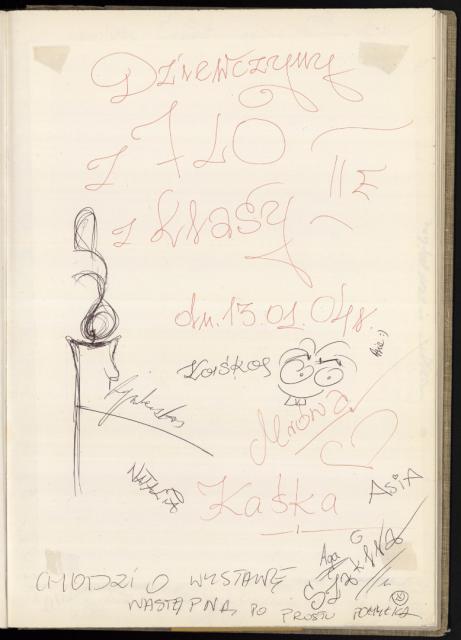 Dziewczyny
z 7 LO
z klasy II E
dn. 13.01.04r.
Kaśkos
Mrówa
NATALIA
Kaśka
ASiA
Aga G
CHODZI O WYSTAWĘ
NASTĘPNĄ, PO PROSTU POMYŁKA